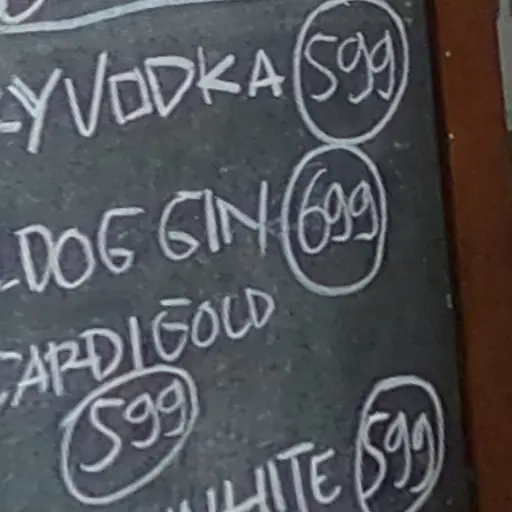 VODKA 599
DOG GIN 699
CARDI GOLD
599
WHITE 599